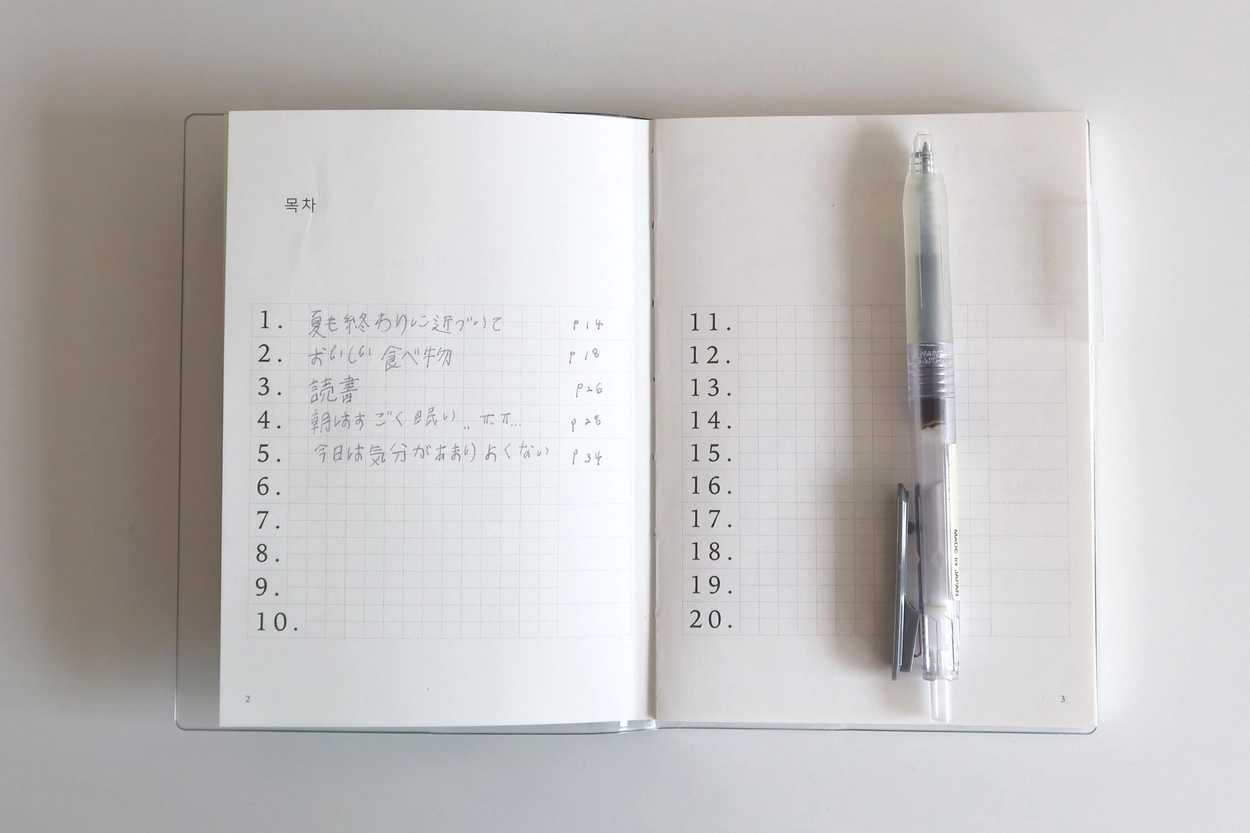 목차
1. 夏も終わりに近づいて p14
2. おいしい食べ物 p18
3. 読書 p26
4. 朝はすごく眠い.. ㅠㅠ... p28
5. 今日は気分があまりよくない p34
6.
7.
8.
9.
10.
2
11.
12.
13.
14.
15.
16.
17.
18.
19.
20.
3
MADE IN JAPAN